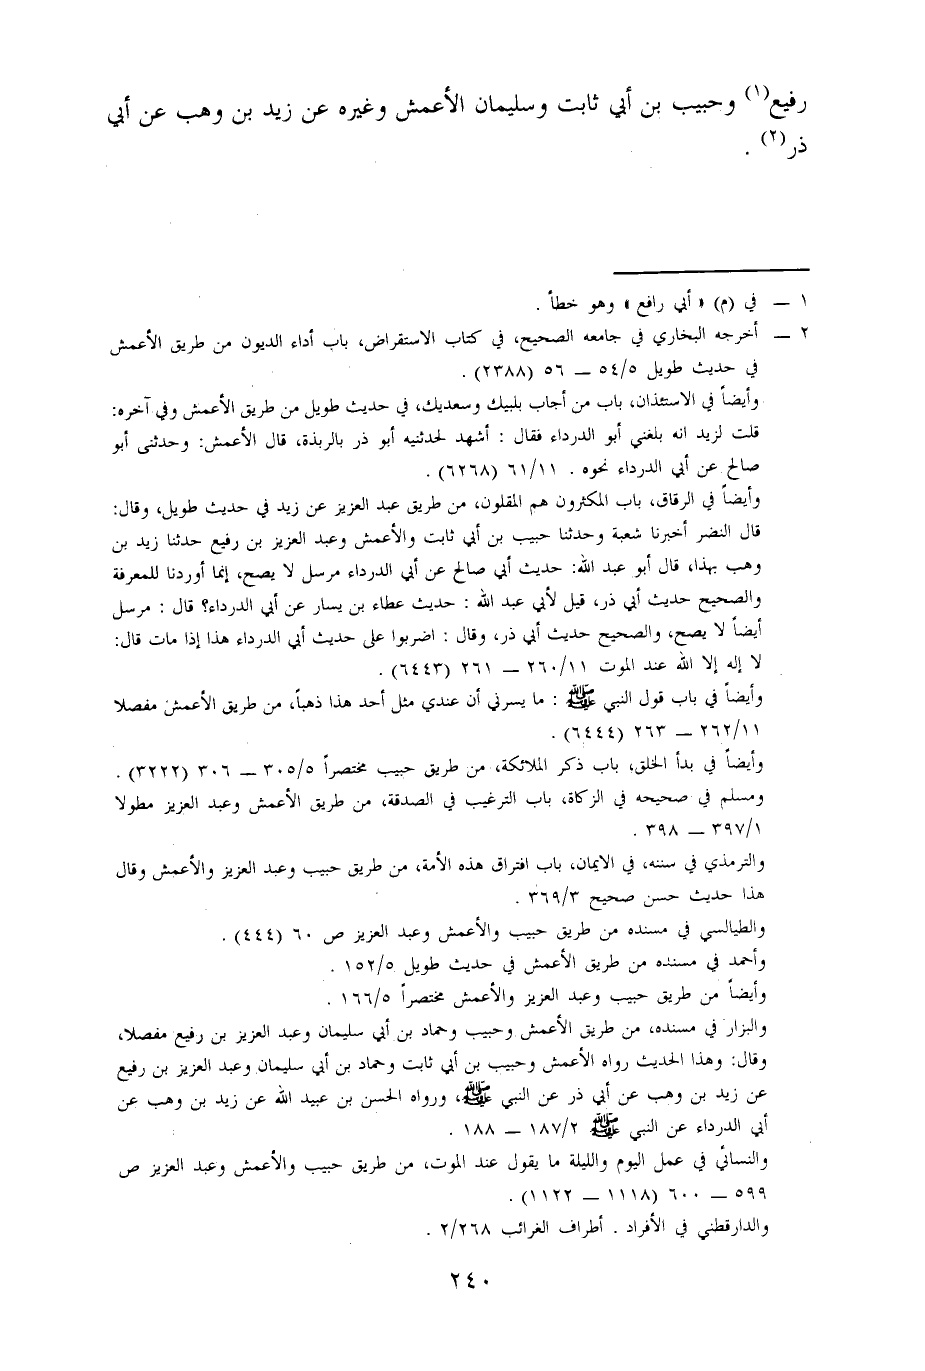 رفيع(١) وحبيب بن أبي ثابت وسليمان الأعمش وغيره عن زيد بن وهب عن أبي
ذر(٢) .
١ — في (م) « أبي رافع » وهو خطأ .
٢ — أخرجه البخاري في جامعه الصحيح، في كتاب الاستقراض، باب أداء الديون من طريق الأعمش
في حديث طويل ٥٤/٥ — ٥٦ (٢٣٨٨) .
وأيضاً في الاستئذان، باب من أجاب بلبيك وسعديك، في حديث طويل من طريق الأعمش وفي آخره:
قلت لزيد انه بلغني أبو الدرداء فقال : أشهد لحدثنيه أبو ذر بالربذة، قال الأعمش: وحدثنى أبو
صالح عن أبي الدرداء نحوه . ٦١/١١ (٦٢٦٨) .
وأيضاً في الرقاق، باب المكثرون هم المقلون، من طريق عبد العزيز عن زيد في حديث طويل، وقال:
قال النضر أخبرنا شعبة وحدثنا حبيب بن أبي ثابت والأعمش وعبد العزيز بن رفيع حدثنا زيد بن
وهب بهذا، قال أبو عبد الله: حديث أبي صالح عن أبي الدرداء مرسل لا يصح، إنما أوردنا للمعرفة
والصحيح حديث أبي ذر، قيل لأبي عبد الله : حديث عطاء بن يسار عن أبي الدرداء؟ قال : مرسل
أيضاً لا يصح، والصحيح حديث أبي ذر، وقال : اضربوا على حديث أبي الدرداء هذا إذا مات قال:
لا إله إلا الله عند الموت ٢٦٠/١١ — ٢٦١ (٦٤٤٣) .
وأيضاً في باب قول النبي ﷺ : ما يسرني أن عندي مثل أحد هذا ذهباً، من طريق الأعمش مفصلا
٢٦٢/١١ — ٢٦٣ (٦٤٤٤) .
وأيضاً في بدأ الخلق، باب ذكر الملائكة، من طريق حبيب مختصراً ٣٠٥/٥ — ٣٠٦ (٣٢٢٢) .
ومسلم في صحيحه في الزكاة، باب الترغيب في الصدقة، من طريق الأعمش وعبد العزيز مطولا
٣٩٧/١ — ٣٩٨ .
والترمذي في سننه، في الايمان، باب افتراق هذه الأمة، من طريق حبيب وعبد العزيز والأعمش وقال
هذا حديث حسن صحيح ٣٦٩/٣ .
والطيالسي في مسنده من طريق حبيب والأعمش وعبد العزيز ص ٦٠ (٤٤٤) .
وأحمد في مسنده من طريق الأعمش في حديث طويل ١٥٢/٥ .
وأيضاً من طريق حبيب وعبد العزيز والأعمش مختصراً ١٦٦/٥ .
والبزار في مسنده، من طريق الأعمش وحبيب وحماد بن أبي سليمان وعبد العزيز بن رفيع مفصلا،
وقال: وهذا الحديث رواه الأعمش وحبيب بن أبي ثابت وحماد بن أبي سليمان وعبد العزيز بن رفيع
عن زيد بن وهب عن أبي ذر عن النبي ﷺ، ورواه الحسن بن عبيد الله عن زيد بن وهب عن
أبي الدرداء عن النبي ﷺ ١٨٧/٢ — ١٨٨ .
والنسائي في عمل اليوم والليلة ما يقول عند الموت، من طريق حبيب والأعمش وعبد العزيز ص
٥٩٩ — ٦٠٠ (١١١٨ — ١١٢٢) .
والدارقطني في الأفراد . أطراف الغرائب ٢/٢٦٨ .
٢٤٠